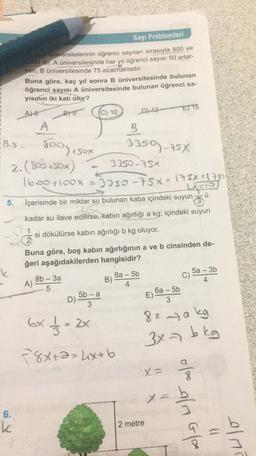 Sayı Problemleri
üniversitelerinin öğrenci sayıları sırasıyla 800 ve
dir. A üniversitesinde her yıl öğrenci sayısı 50 artar-
ken, B üniversitesinde 75 azalmaktadır.
Buna göre, kaç yıl sonra B üniversitesinde bulunan
öğrenci sayısı A üniversitesinde bulunan öğrenci sa-
yısının iki katı olur?
A) 8 B) 9 C) 10 D) 12 E) 15
A B
800 3350
+50x -75x
2.(800+50x) = 3350-75x
1600+100x = 3350-75x
5. İçerisinde bir miktar su bulunan kaba içindeki suyun 1/3 ü
kadar su ilave edilirse, kabın ağırlığı a kg; içindeki suyun
1/2 si dökülürse kabın ağırlığı b kg oluyor.
Buna göre, boş kabın ağırlığının a ve b cinsinden de-
ğeri aşağıdakilerden hangisidir?
A) 8b – 3a / 5 B) 8a – 5b / 4 C) 5a – 3b / 4
D) 5b – a / 3 E) 6a – 5b / 3
6x 1/3 = 2x
8x → a kg
3x → b kg
8x+a=4x+b
x = a/8
x = b/3
a/8 = b/3
6.
2 metre